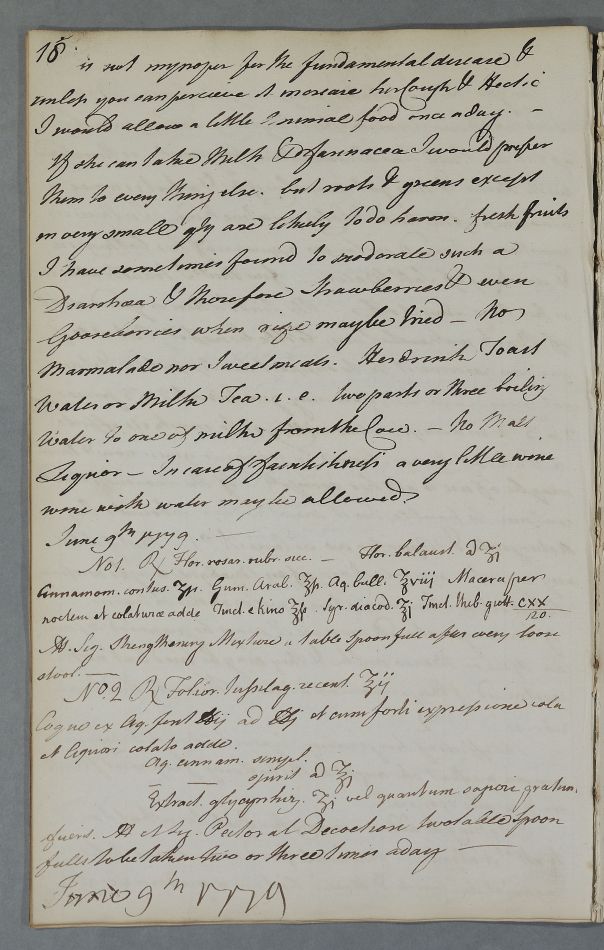 18
is not improper for the fundamental disease &
unless you can perceive it increase her Cough & Hectic
I would allow a little Animal food once a day. –
If she can take Milk & farinacea I would prefer
them to every thing else. but roots & greens except
in very small qty are likely to do harm. fresh fruits
I have sometimes found to moderate such a
Diarrhœa & therefore strawberries & even
Gooseberries when ripe may be tried – No
Marmalade nor Sweetmeats. Her drink Toast
Water or Milk Tea. i. e. two parts or three boiling
Water to one of milk from the Cow. – No Malt
Liquor – In case of faintishness a very little wine
wine with water may be allowed
June 9th 1779. –
No 1. ℞ Flor. rosar. rubr. sicc. – Flor. balaust. a ʒj
Cinnamom. contus. ʒſs. Gum. Arab. ʒſs. Aq. bull. ℥viij Macera per
noctem et colaturæ adde Tinct. e kino ℥ſs. Syr. diacod. ℥j Tinct. theb. gutt. CXX
120.
M. Sig. Strengthening Mixture, a table spoonfull after every loose
stool. –
No. 2 ℞ Folior. tussilag. recent. ℥ij
Coque ex Aq. font ij ad j et cum forti expressione cola
et liquori colato adde.
Aq. cinnam. simpl.
spirit a ℥j
Extract. glycyrrhiz. ʒj vel quantum sapori gratum
fuerit. M et Sig. Pectoral Decoction two table spoon
fulls to be taken two or three times a day –
June 9th 1779